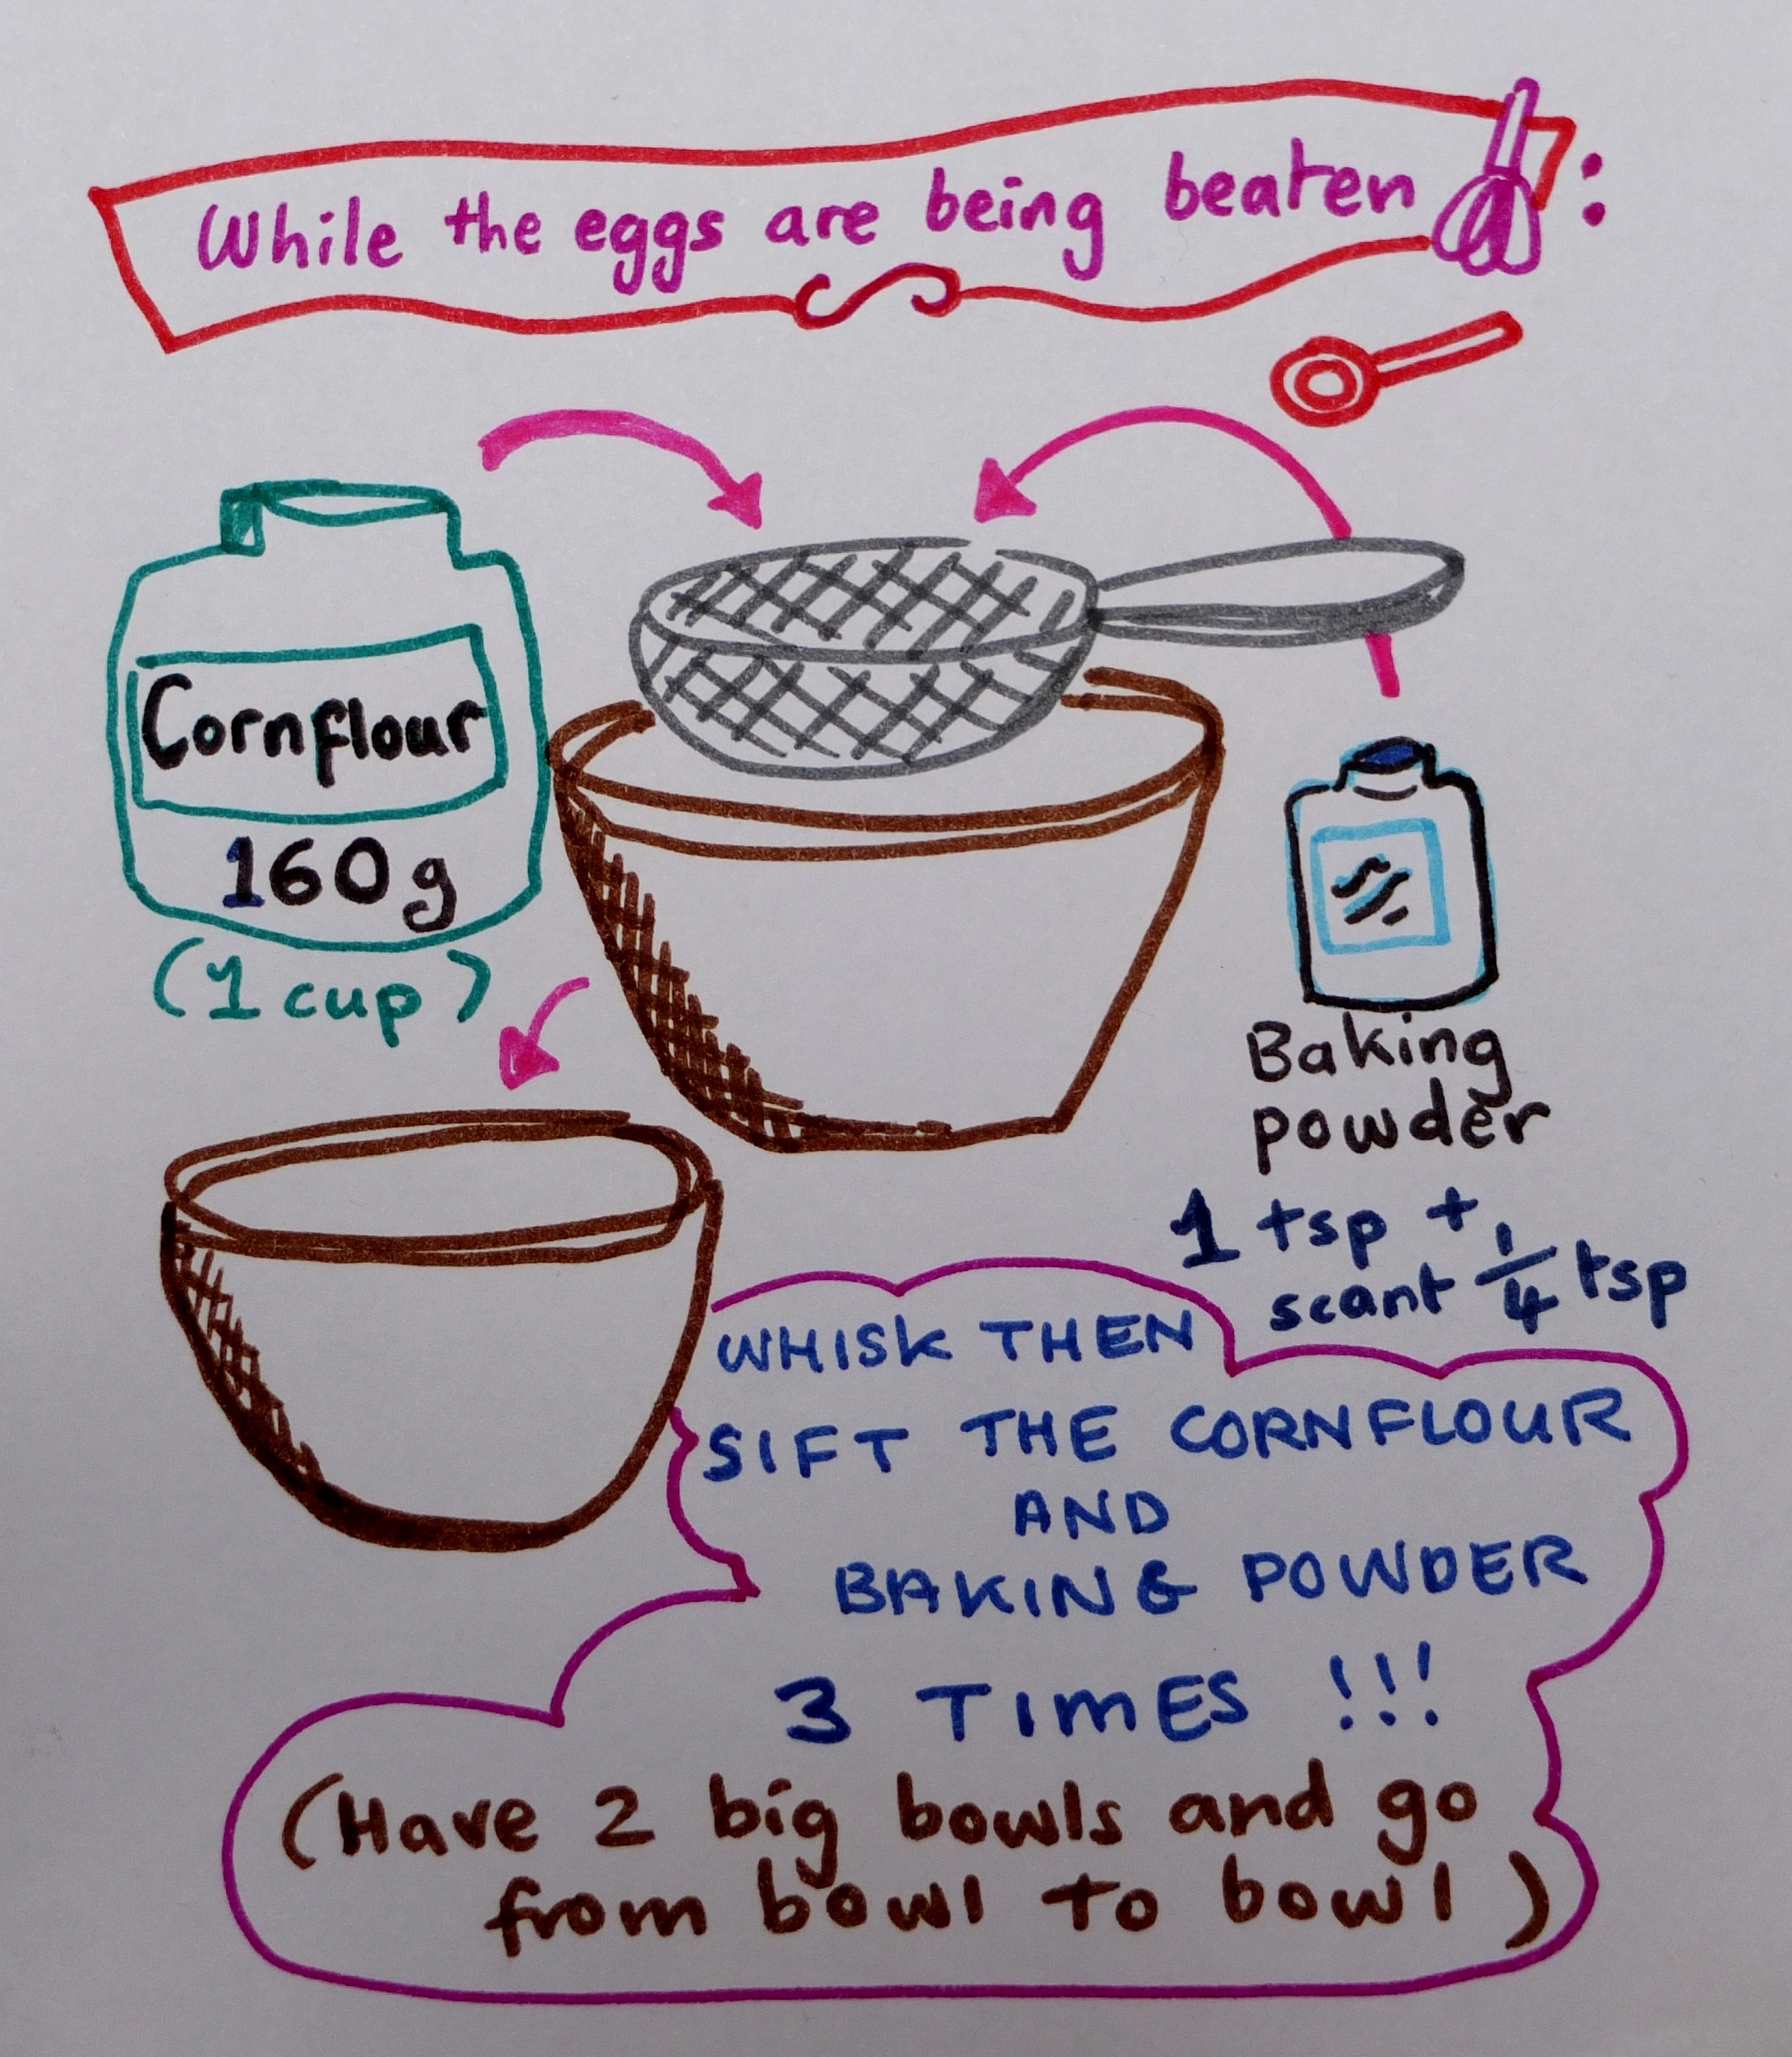 While the eggs are being beaten :
Cornflour
160g
(1 cup)
Baking
powder
1 tsp +
scant 1/4 tsp
WHISK THEN
SIFT THE CORNFLOUR
AND
BAKING POWDER
3 TIMES !!!
(Have 2 big bowls and go
from bowl to bowl)